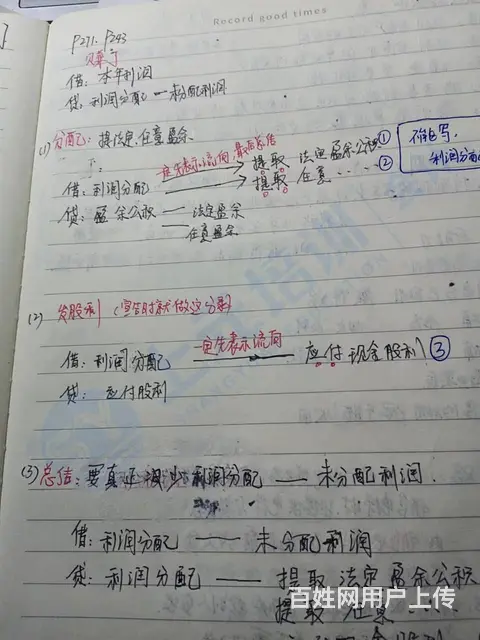 Record good times
P271. P243
贝赚了
借：本年利润
贷：利润分配 — 未分配利润
(1) 分配：提法定、任意盈余
一定先表示流向，最后总结
提取 法定盈余公积 ①
不能写，
利润分配
借：利润分配
提取 任意 …… ②
贷：盈余公积 — 法定盈余
— 任意盈余
(2) 发股利（宣告时就做这分录）
一定先表示流向
借：利润分配 — 应付现金股利 ③
贷：应付股利
(3) 总结：要真正减少利润分配 — 未分配利润.
借：利润分配 — 未分配利润
贷：利润分配 — 提取 法定盈余公积
提取 任意 ……
百姓网用户上传